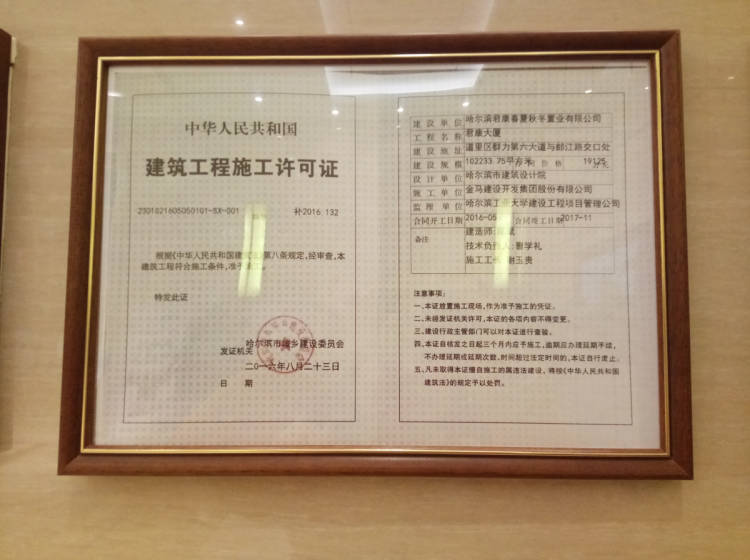 中华人民共和国
建筑工程施工许可证
2301021605050101-SX-001
补2016.132
根据《中华人民共和国建筑法》第八条规定,经审查,本
建筑工程符合施工条件,准予施工。
特发此证
哈尔滨市城乡建设委员会
发证机关
二〇一六年八月二十三日
日 期
建设单位 哈尔滨君康春夏秋冬置业有限公司
工程名称 君康大厦
建设地址 道里区群力第六大道与郎江路交口处
建设规模 102233.75平方米 合同价格 19125 万元
设计单位 哈尔滨市建筑设计院
施工单位 金马建设开发集团股份有限公司
监理单位 哈尔滨工业大学建设工程项目管理公司
合同开工日期 2016-05 合同竣工日期 2017-11
备注 建造师: 斌
技术负责人:鄄学礼
施工工长:谢玉贵
注意事项:
一、本证放置施工现场,作为准予施工的凭证。
二、未经发证机关许可,本证的各项内容不得变更。
三、建设行政主管部门可以对本证进行查验。
四、本证自核发之日起三个月内应予施工,逾期应办理延期手续,
不办理延期或延期次数、时间超过法定时间的,本证自行废止。
五、凡未取得本证擅自施工的属违法建设,将按《中华人民共和国
建筑法》的规定予以处罚。